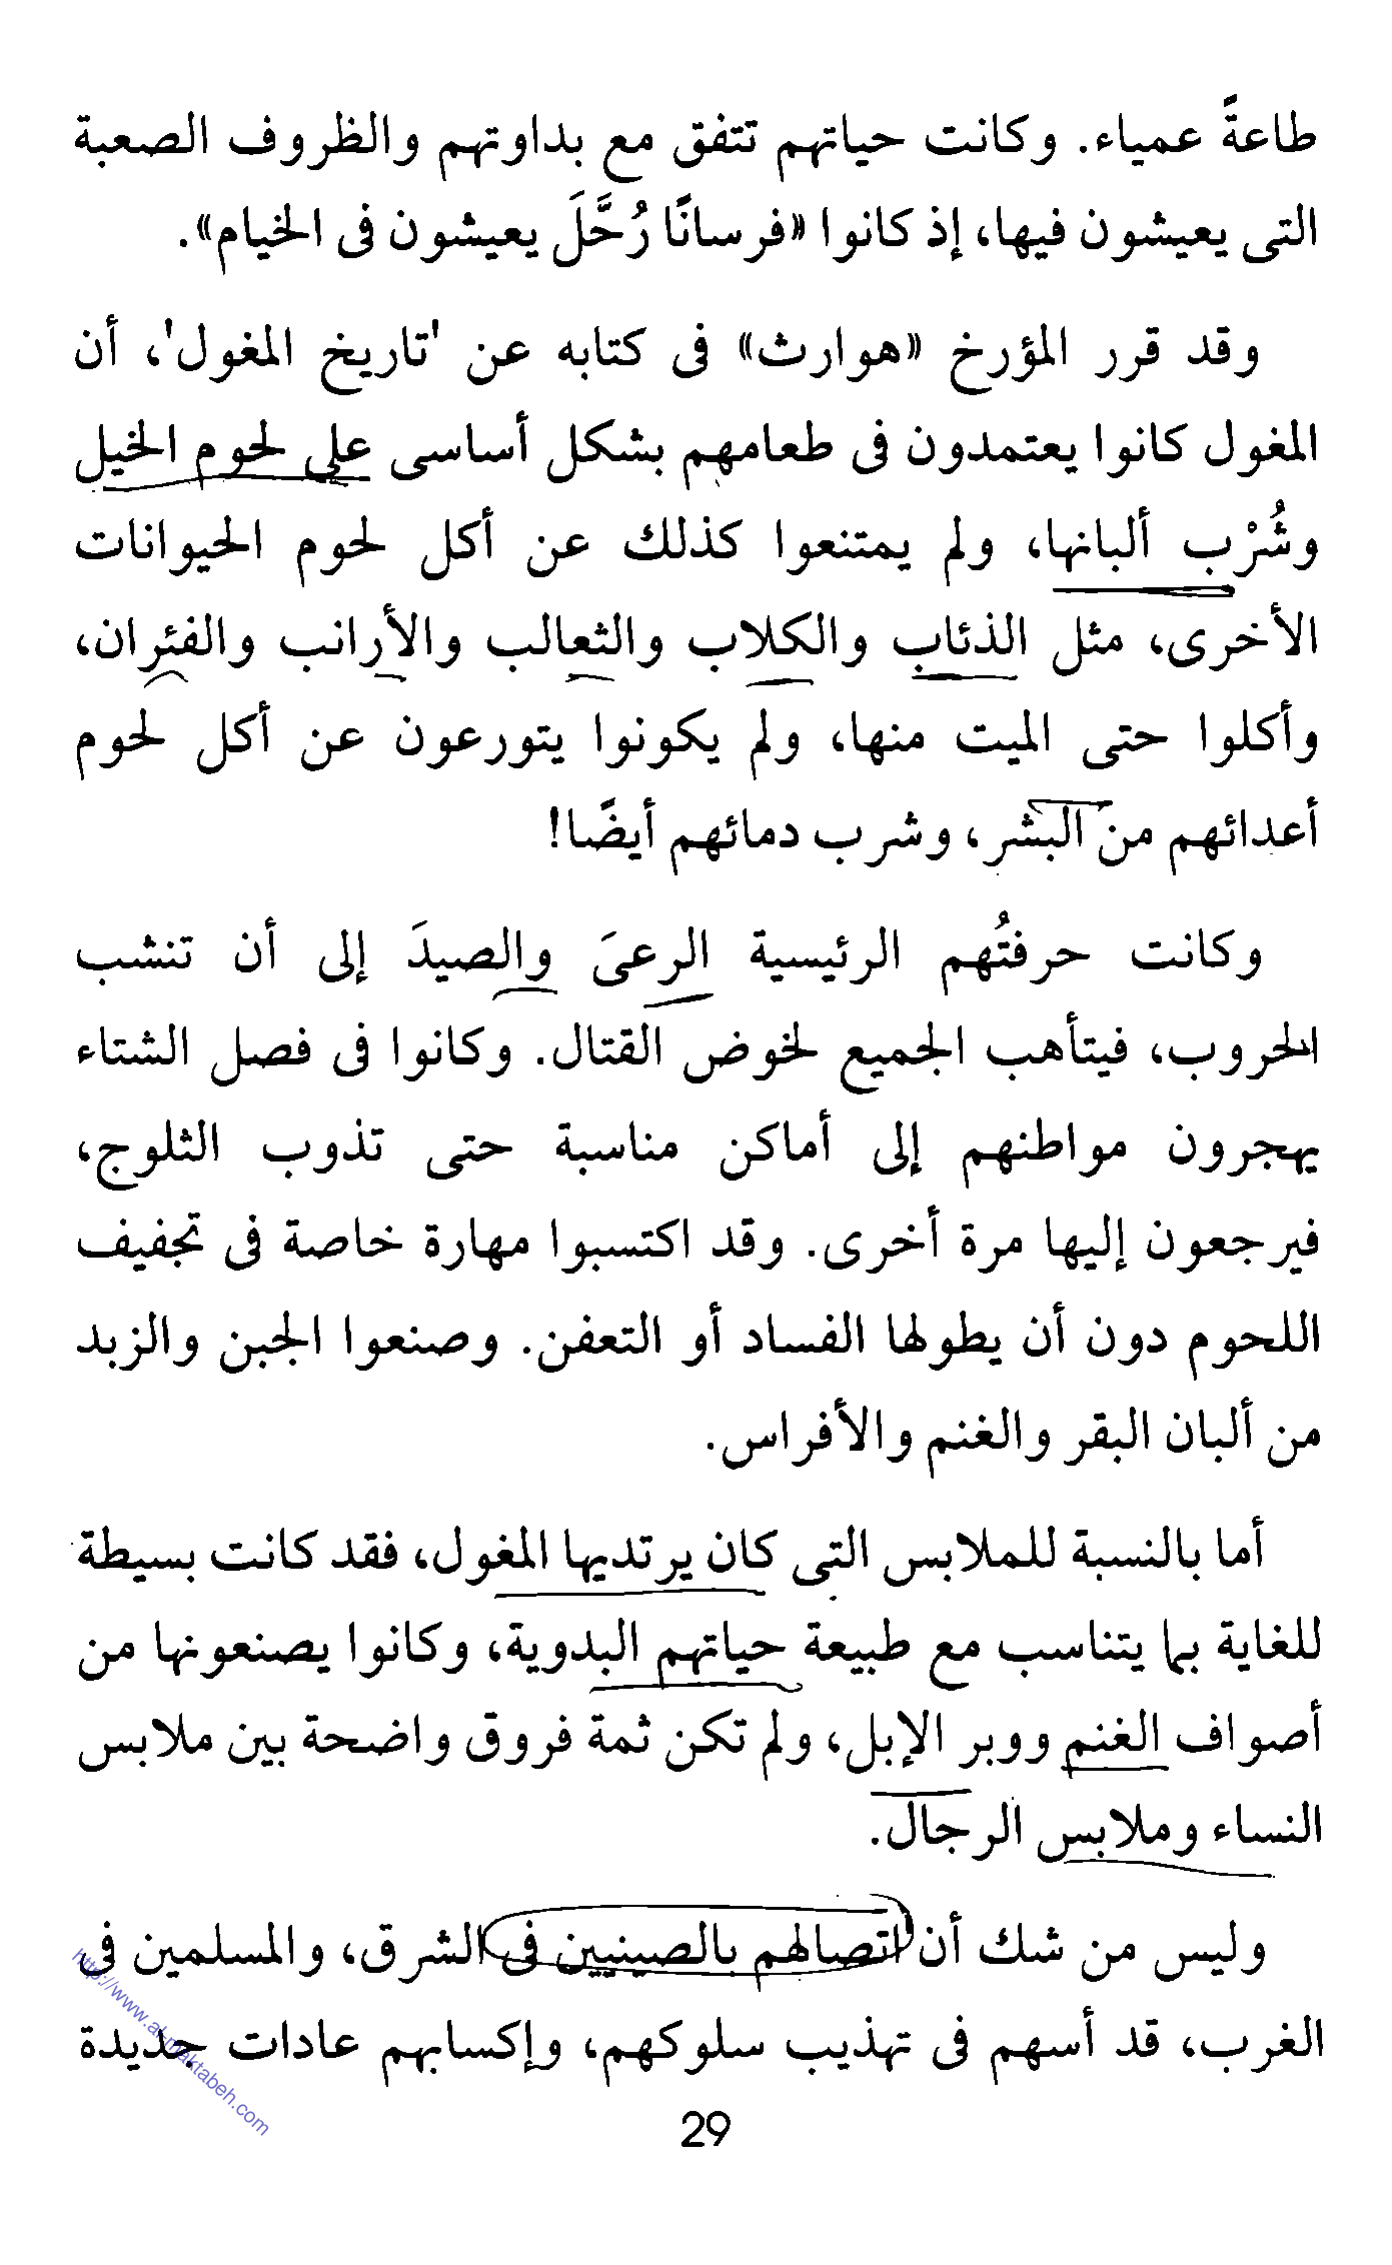 طاعةً عمياء. وكانت حياتهم تتفق مع بداوتهم والظروف الصعبة
التى يعيشون فيها، إذ كانوا «فرسانًا رُحَّلَ يعيشون فى الخيام».
وقد قرر المؤرخ «هوارث» فى كتابه عن 'تاريخ المغول'، أن
المغول كانوا يعتمدون فى طعامهم بشكل أساسى على لحوم الخيل
وشُرْب ألبانها، ولم يمتنعوا كذلك عن أكل لحوم الحيوانات
الأخرى، مثل الذئاب والكلاب والثعالب والأرانب والفئران،
وأكلوا حتى الميت منها، ولم يكونوا يتورعون عن أكل لحوم
أعدائهم من البشر، وشرب دمائهم أيضًا!
وكانت حرفتُهم الرئيسية الرعىَ والصيدَ إلى أن تنشب
الحروب، فيتأهب الجميع لخوض القتال. وكانوا فى فصل الشتاء
يهجرون مواطنهم إلى أماكن مناسبة حتى تذوب الثلوج،
فيرجعون إليها مرة أخرى. وقد اكتسبوا مهارة خاصة فى تجفيف
اللحوم دون أن يطولها الفساد أو التعفن. وصنعوا الجبن والزبد
من ألبان البقر والغنم والأفراس.
أما بالنسبة للملابس التى كان يرتديها المغول، فقد كانت بسيطة
للغاية بما يتناسب مع طبيعة حياتهم البدوية، وكانوا يصنعونها من
أصواف الغنم ووبر الإبل، ولم تكن ثمة فروق واضحة بين ملابس
النساء وملابس الرجال.
وليس من شك أن اتصالهم بالصينيين فى الشرق، والمسلمين فى
الغرب، قد أسهم فى تهذيب سلوكهم، وإكسابهم عادات جديدة
29
http://www.al-maktabeh.com